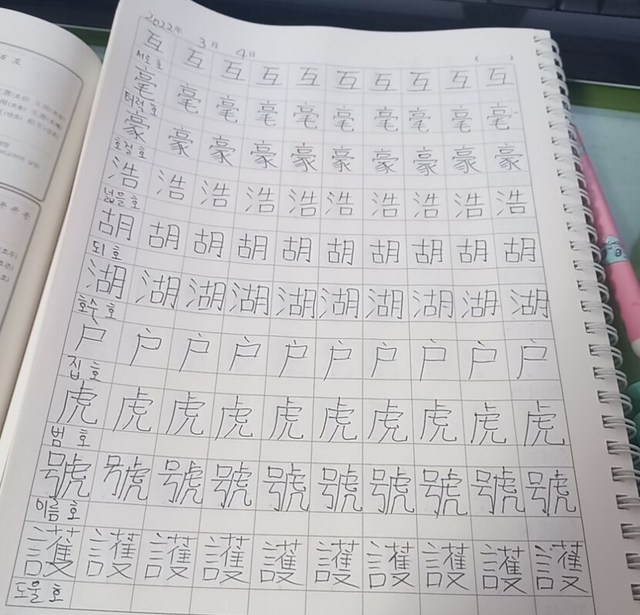 2022年 3月 4日 ( )
互 互 互 互 互 互 互 互 互 互
서로 호
毫 毫 毫 毫 毫 毫 毫 毫 毫 毫
터럭 호
豪 豪 豪 豪 豪 豪 豪 豪 豪 豪
호걸 호
浩 浩 浩 浩 浩 浩 浩 浩 浩 浩
넓을 호
胡 胡 胡 胡 胡 胡 胡 胡 胡 胡
되 호
湖 湖 湖 湖 湖 湖 湖 湖 湖 湖
호수 호
户 户 户 户 户 户 户 户 户 户
집 호
虎 虎 虎 虎 虎 虎 虎 虎 虎 虎
범 호
號 號 號 號 號 號 號 號 號 號
이름 호
護 護 護 護 護 護 護 護 護 護
도울 호